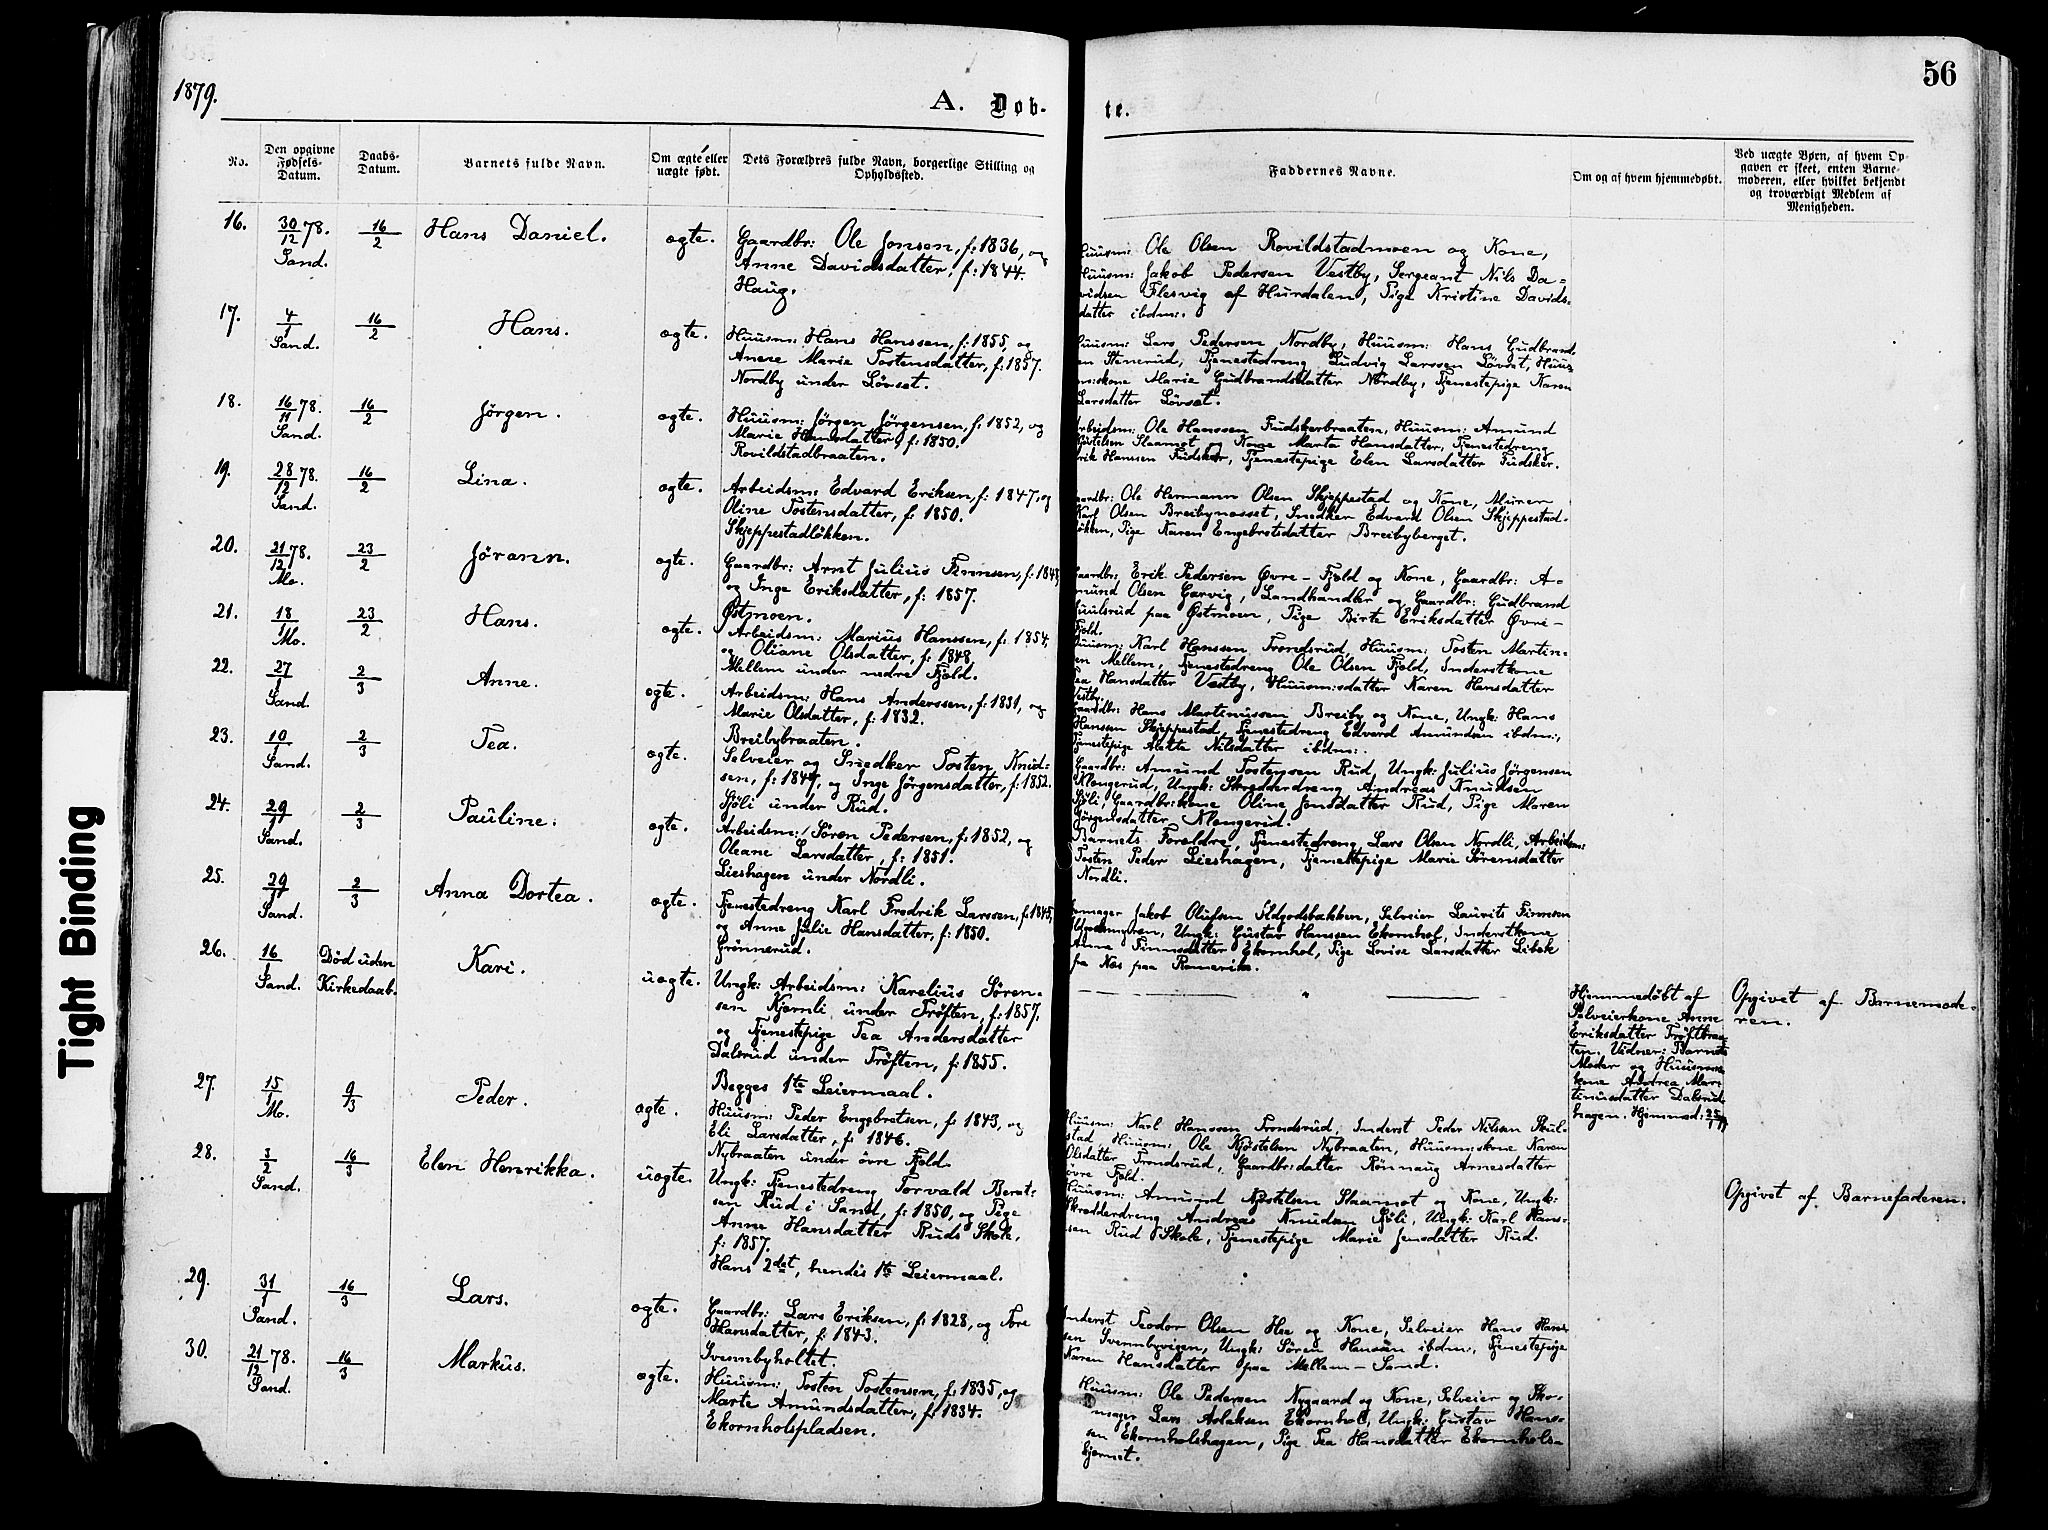 56
1879.
A. Døb-
te.
No.
Den opgivne
Fødsels-
Datum.
Daabs-
Datum.
Barnets fulde Navn.
Om ægte eller
uægte født.
Dets Forældres fulde Navn, borgerlige Stilling og
Opholdssted.
Faddernes Navne.
Om og af hvem hjemmedøbt.
Ved uægte Børn, af hvem Op-
gaven er skeet, enten Barne-
moderen, eller hvilket bekjendt
og troværdigt Medlem af
Menigheden.
16.
30/12 78.
Sand.
16/2
Hans Daniel.
ægte.
Gaardbr: Ole Jonsen, f: 1836, og
Anne Davidsdatter, f: 1844.
Haug.
Huusm: Ole Olsen Rovildstadmoen og Kone,
Huusm: Jakob Pedersen Vestby, Sergeant Nils Da=
vidsen Flesvig af Hurdalen, Pige Kristine Davids-
datter ibdm:.
17.
4/1
Sand.
16/2
Hans.
ægte.
Huusm: Hans Hanssen, f: 1855, og
Anne Marie Tostensdatter, f: 1857.
Nordby under Løvset.
Huusm: Lars Pedersen Nordby, Huusm: Hans Gudbrand-
sen Stenerud, Tjenestedreng Ludvig Larssen Løvset, Huus-
m:skone Marie Gudbrandsdatter Nordby, Tjenestepige Karen
Larsdatter Løvset.
18.
16/11 78.
Sand.
16/2
Jørgen.
ægte.
Huusm: Jørgen Jørgensen, f: 1852, og
Marie Hansdatter, f: 1850.
Rovildstadbraaten.
Arbeidsm: Ole Hanssen Fudskerbraaten, Huusm: Amund
Kjøstelsen Slaamot og Kone Marta Hansdatter, Tjenestedreng
Erik Hanssen Fudsker, Tjenestepige Elen Larsdatter Fudsker.
19.
28/12 78.
Sand.
16/2
Lina.
ægte.
Arbeidsm: Edvard Eriksen, f: 1847, og
Oline Tostensdatter, f: 1850.
Skjeppestadløkken.
Gaardbr: Ole Hermann Olsen Skjeppestad og Kone, Murer
Karl Olsen Breibynesset, Snedker Edvard Olsen Skjeppestad-
løkken, Pige Karen Engebretsdatter Breibyberget.
20.
21/12 78.
Mo.
23/2
Jørann.
ægte.
Gaardbr: Arnt Julius Finnsen, f: 1843,
og Inge Eriksdatter, f: 1857.
Østmoen.
Gaardbr: Erik Pedersen Øvre-Fjeld og Kone, Gaardbr: A-
mund Olsen Garvig, Landhandler og Gaardbr: Gudbrand
Juulsrud paa Østmoen, Pige Birte Eriksdatter Øvre-
Fjeld.
21.
18/1
Mo.
23/2
Hans.
ægte.
Arbeidsm: Marius Hanssen, f: 1854,
og Oliane Olsdatter, f: 1848
Mellem under nedre Fjeld.
Huusm: Karl Hanssen Trondsrud, Huusm: Tosten Martin-
sen Mellem, Tjenestedreng Ole Olsen Fjeld, Inderstkone
Tea Hansdatter Vestby, Huusm:sdatter Karen Hansdatter
Vestby.
22.
27/1
Sand.
2/3
Anne.
ægte.
Arbeidsm: Hans Anderssen, f: 1831, og
Marie Olsdatter, f: 1832.
Breibybraaten.
Gaardbr: Hans Martinussen Breiby og Kone, Ungk: Hans
Hansen Skjeppestad, Tjenestedreng Edvard Amundsen ibdm:,
Tjenestepige Alette Nilsdatter ibdm:.
23.
10/1
Sand.
2/3
Tea.
ægte.
Selveier og Snedker Tosten Knud-
sen, f: 1847, og Inge Jørgensdatter, f: 1852.
Sjøli under Rud.
Gaardbr: Amund Tostensen Rud, Ungk: Julius Jørgensen
Klongerud, Ungk: Skrædderdreng Andreas Knudsen
Sjøli, Gaardbr:kone Oline Jonsdatter Rud, Pige Maren
Jørgensdatter Klongerud.
24.
29/1
Sand.
2/3
Pauline.
ægte.
Arbeidsm: Søren Pedersen, f: 1852, og
Oleane Larsdatter, f: 1851.
Lieshagen under Nordli.
Barnets Foreldre, Tjenestedreng Lars Olsen Nordli, Arbeidsm:
Tosten Peder Lieshagen, Tjenestepige Marie Sørensdatter
Nordli.
25.
29/11
Sand.
2/3
Anna Dortea.
ægte.
Tjenestedreng Karl Fredrik Larssen, f: 1845,
og Anne Julie Hansdatter, f: 1850.
Grønnerud.
Skomager Jakob Olufsen Eldgodsbakken, Selveier Laurits Finnsen
Ungk: Gustav Hanssen Ekornhol, Inderstkone
Anne Finnsdatter Ekornhol, Pige Lovise Larsdatter Libek
fra Nes paa Romerike.
26.
16/1
Sand.
Død uden
Kirkedaab.
Kari.
uægte.
Ungk: Arbeidsm: Karelius Søren-
sen Kjernli under Trøften, f: 1857,
og Tjenestepige Tea Andersdatter
Dalsrud under Trøften, f: 1855.
Begges 1te Leiermaal.
— " —
Hjemmedøbt af
Selveierkone Anne
Eriksdatter Trøftbraa-
ten. Vidner: Barnets
Moder og Huusm:s
kone Andrea Mar-
tinusdatter Dalsrud-
hagen. Hjemmed: 25/1
Opgivet af Barnemode-
ren.
27.
15/1
Mo.
9/3
Peder.
ægte.
Huusm: Peder Engebretsen, f: 1843, og
Eli Larsdatter, f: 1846.
Nybraaten under øvre Fjeld.
Huusm: Karl Hanssen Trondsrud, Inderst Peder Nilsen Skul-
stad, Huusm: Ole Kjøstelsen Nybraaten, Huusm:skone Karen
Olsdatter Trondsrud, Gaardbr:datter Rønnaug Arnesdatter
øvre Fjeld.
28.
3/2
Sand.
16/3
Elen Henrikka.
uægte.
Ungk: Tjenestedreng Torvald Bernt-
sen Rud i Sand, f: 1850, og Pige
Anne Hansdatter Ruds Skole,
f: 1857.
Hans 2det, hendes 1te Leiermaal.
Huusm: Amund Kjøstelsen Slaamot og Kone, Ungk:
Skrædderdreng Andreas Knudsen Sjøli, Ungk: Karl Hans-
sen Rud Skole, Tjenestepige Marie Jensdatter Rud.
Opgivet af Barnefaderen.
29.
31/1
Sand.
16/3
Lars.
ægte.
Gaardbr: Lars Eriksen, f: 1828, og Tore
Hansdatter, f: 1843.
Svennbyholtet.
Inderst Teodor Olsen Hee og Kone, Selveier Hans Hans-
sen Svennbyvigen, Ungk: Søren Hansen ibdm:, Tjenestepige
Karen Hansdatter paa Mellem-Sand.
30.
21/12 78.
Sand.
16/3
Markus.
ægte.
Huusm: Tosten Tostensen, f: 1835, og
Marte Amundsdatter, f: 1834.
Ekornholspladsen.
Huusm: Ole Pedersen Nygaard og Kone, Selveier og Sko-
mager Lars Aslaksen Ekornhol, Ungk: Gustav Hans-
sen Ekornholshagen, Pige Tea Hansdatter Ekornhols-
kjernet.
Tight Binding